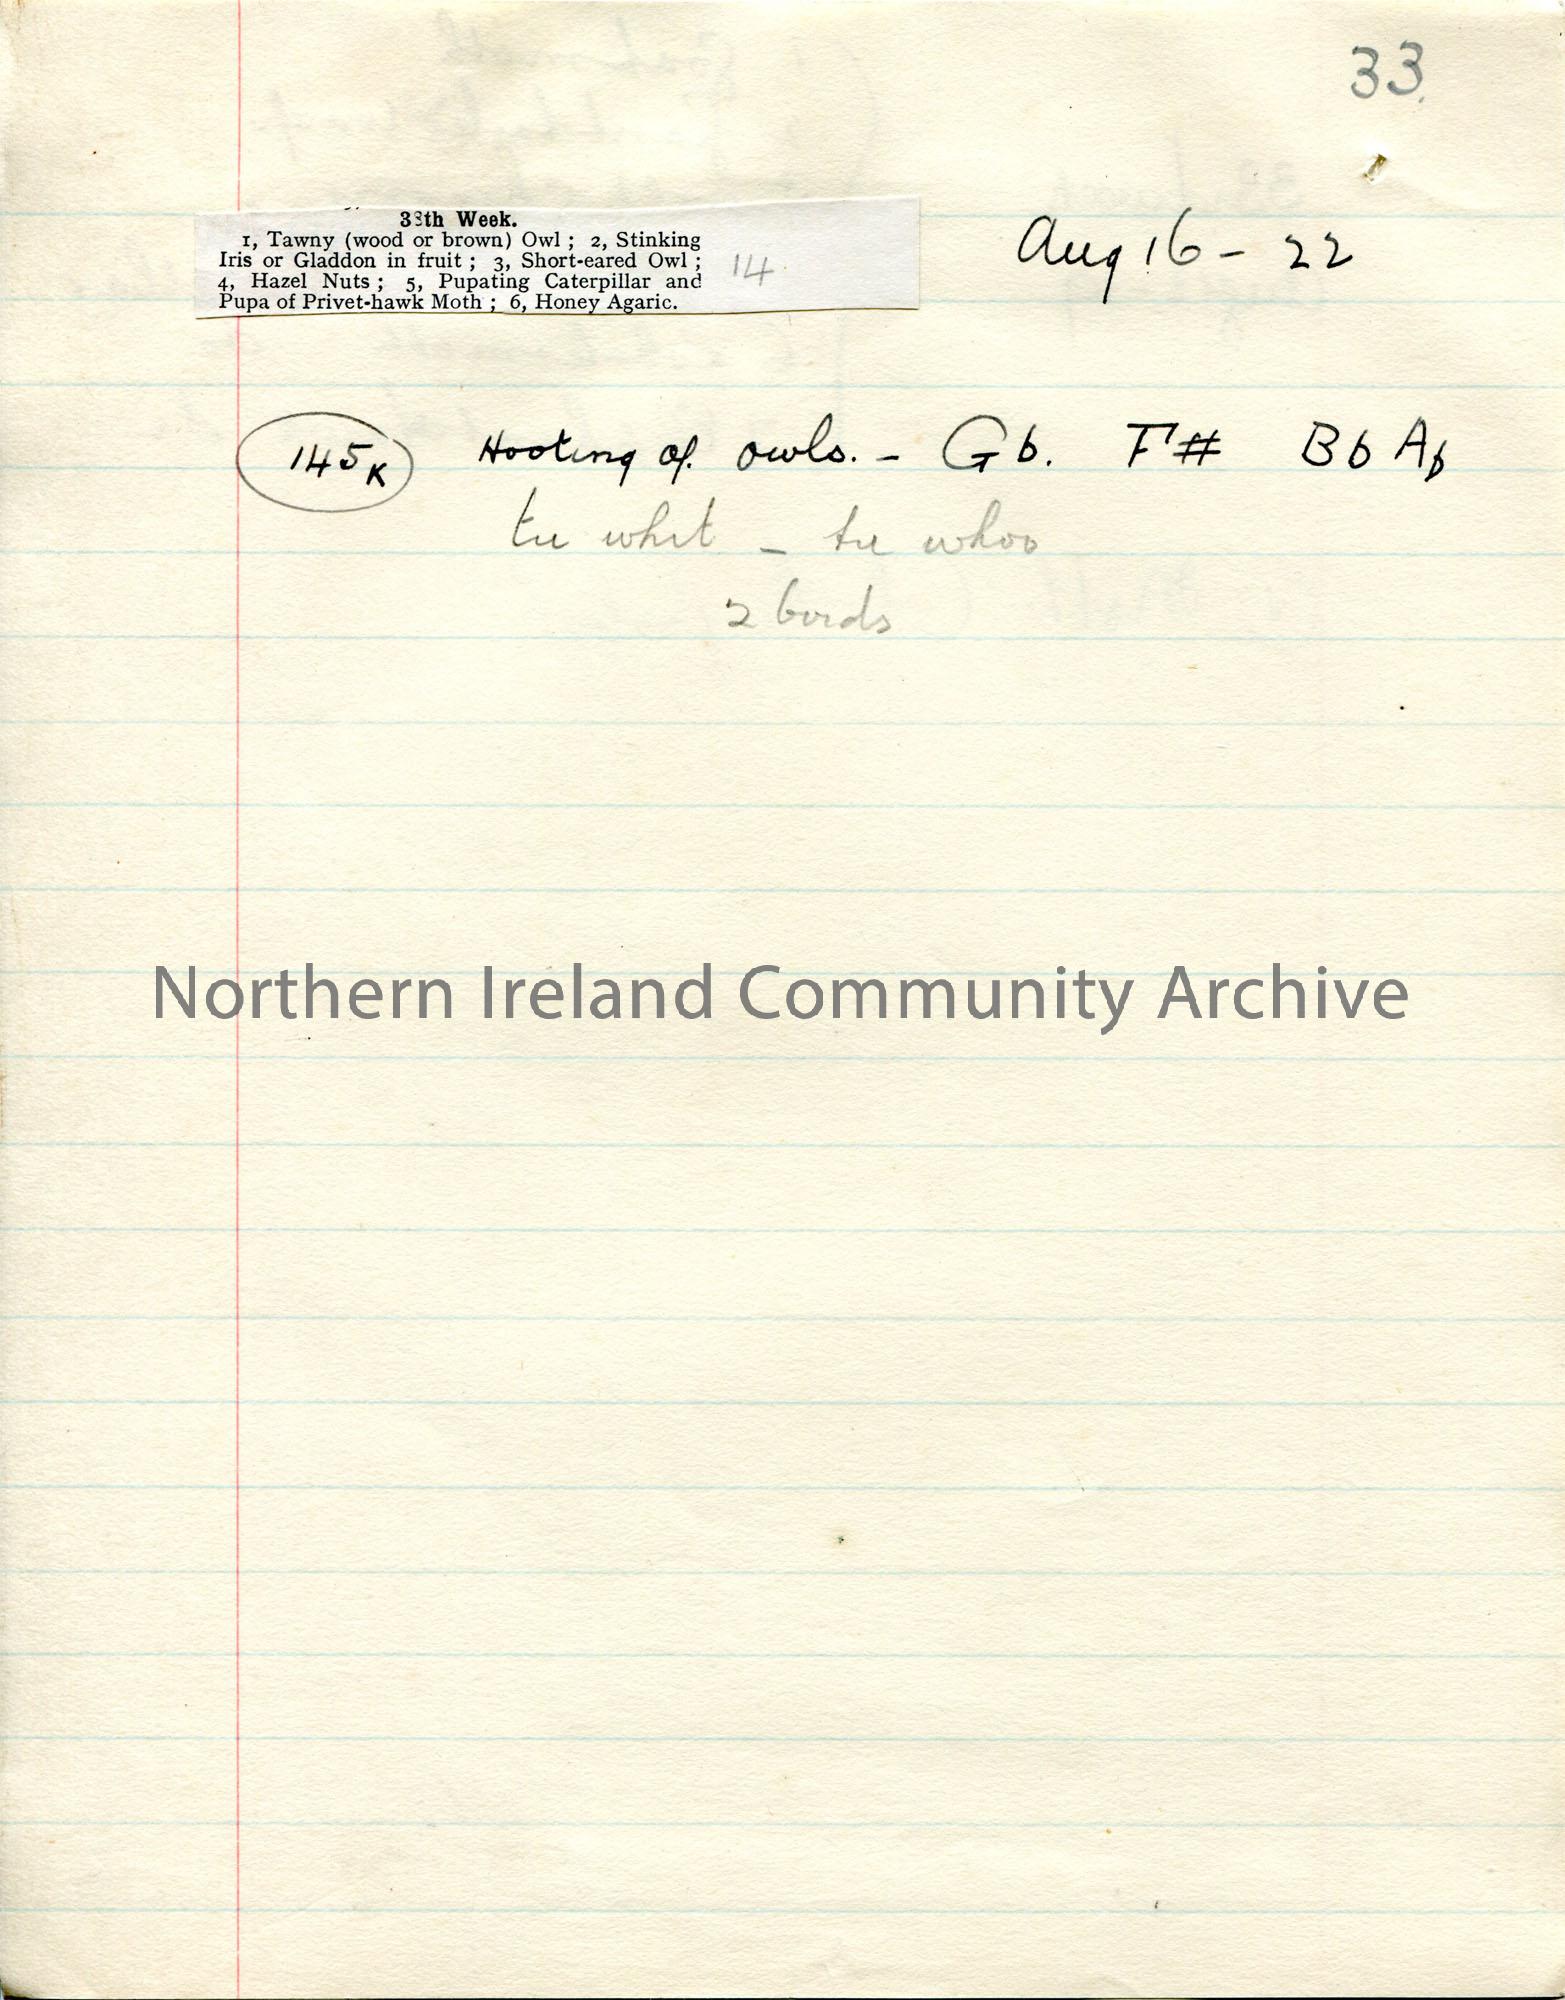 33
33th Week.
1, Tawny (wood or brown) Owl ; 2, Stinking
Iris or Gladdon in fruit ; 3, Short-eared Owl ;
4, Hazel Nuts ; 5, Pupating Caterpillar and
Pupa of Privet-hawk Moth ; 6, Honey Agaric.
14
Aug 16 - 22
145K Hooting of owls. - Gb. F# Bb Ab
tu whit - tu whoo
2 birds
Northern Ireland Community Archive